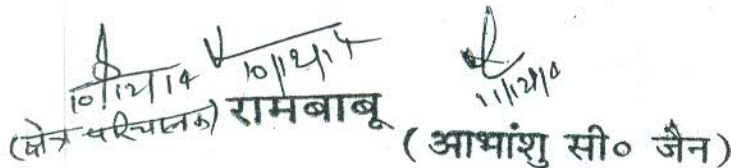 10/12/14 10/12/14 11/12/14
(क्षेत्र परिचालक) रामबाबू
( आभांशु सी० जैन)